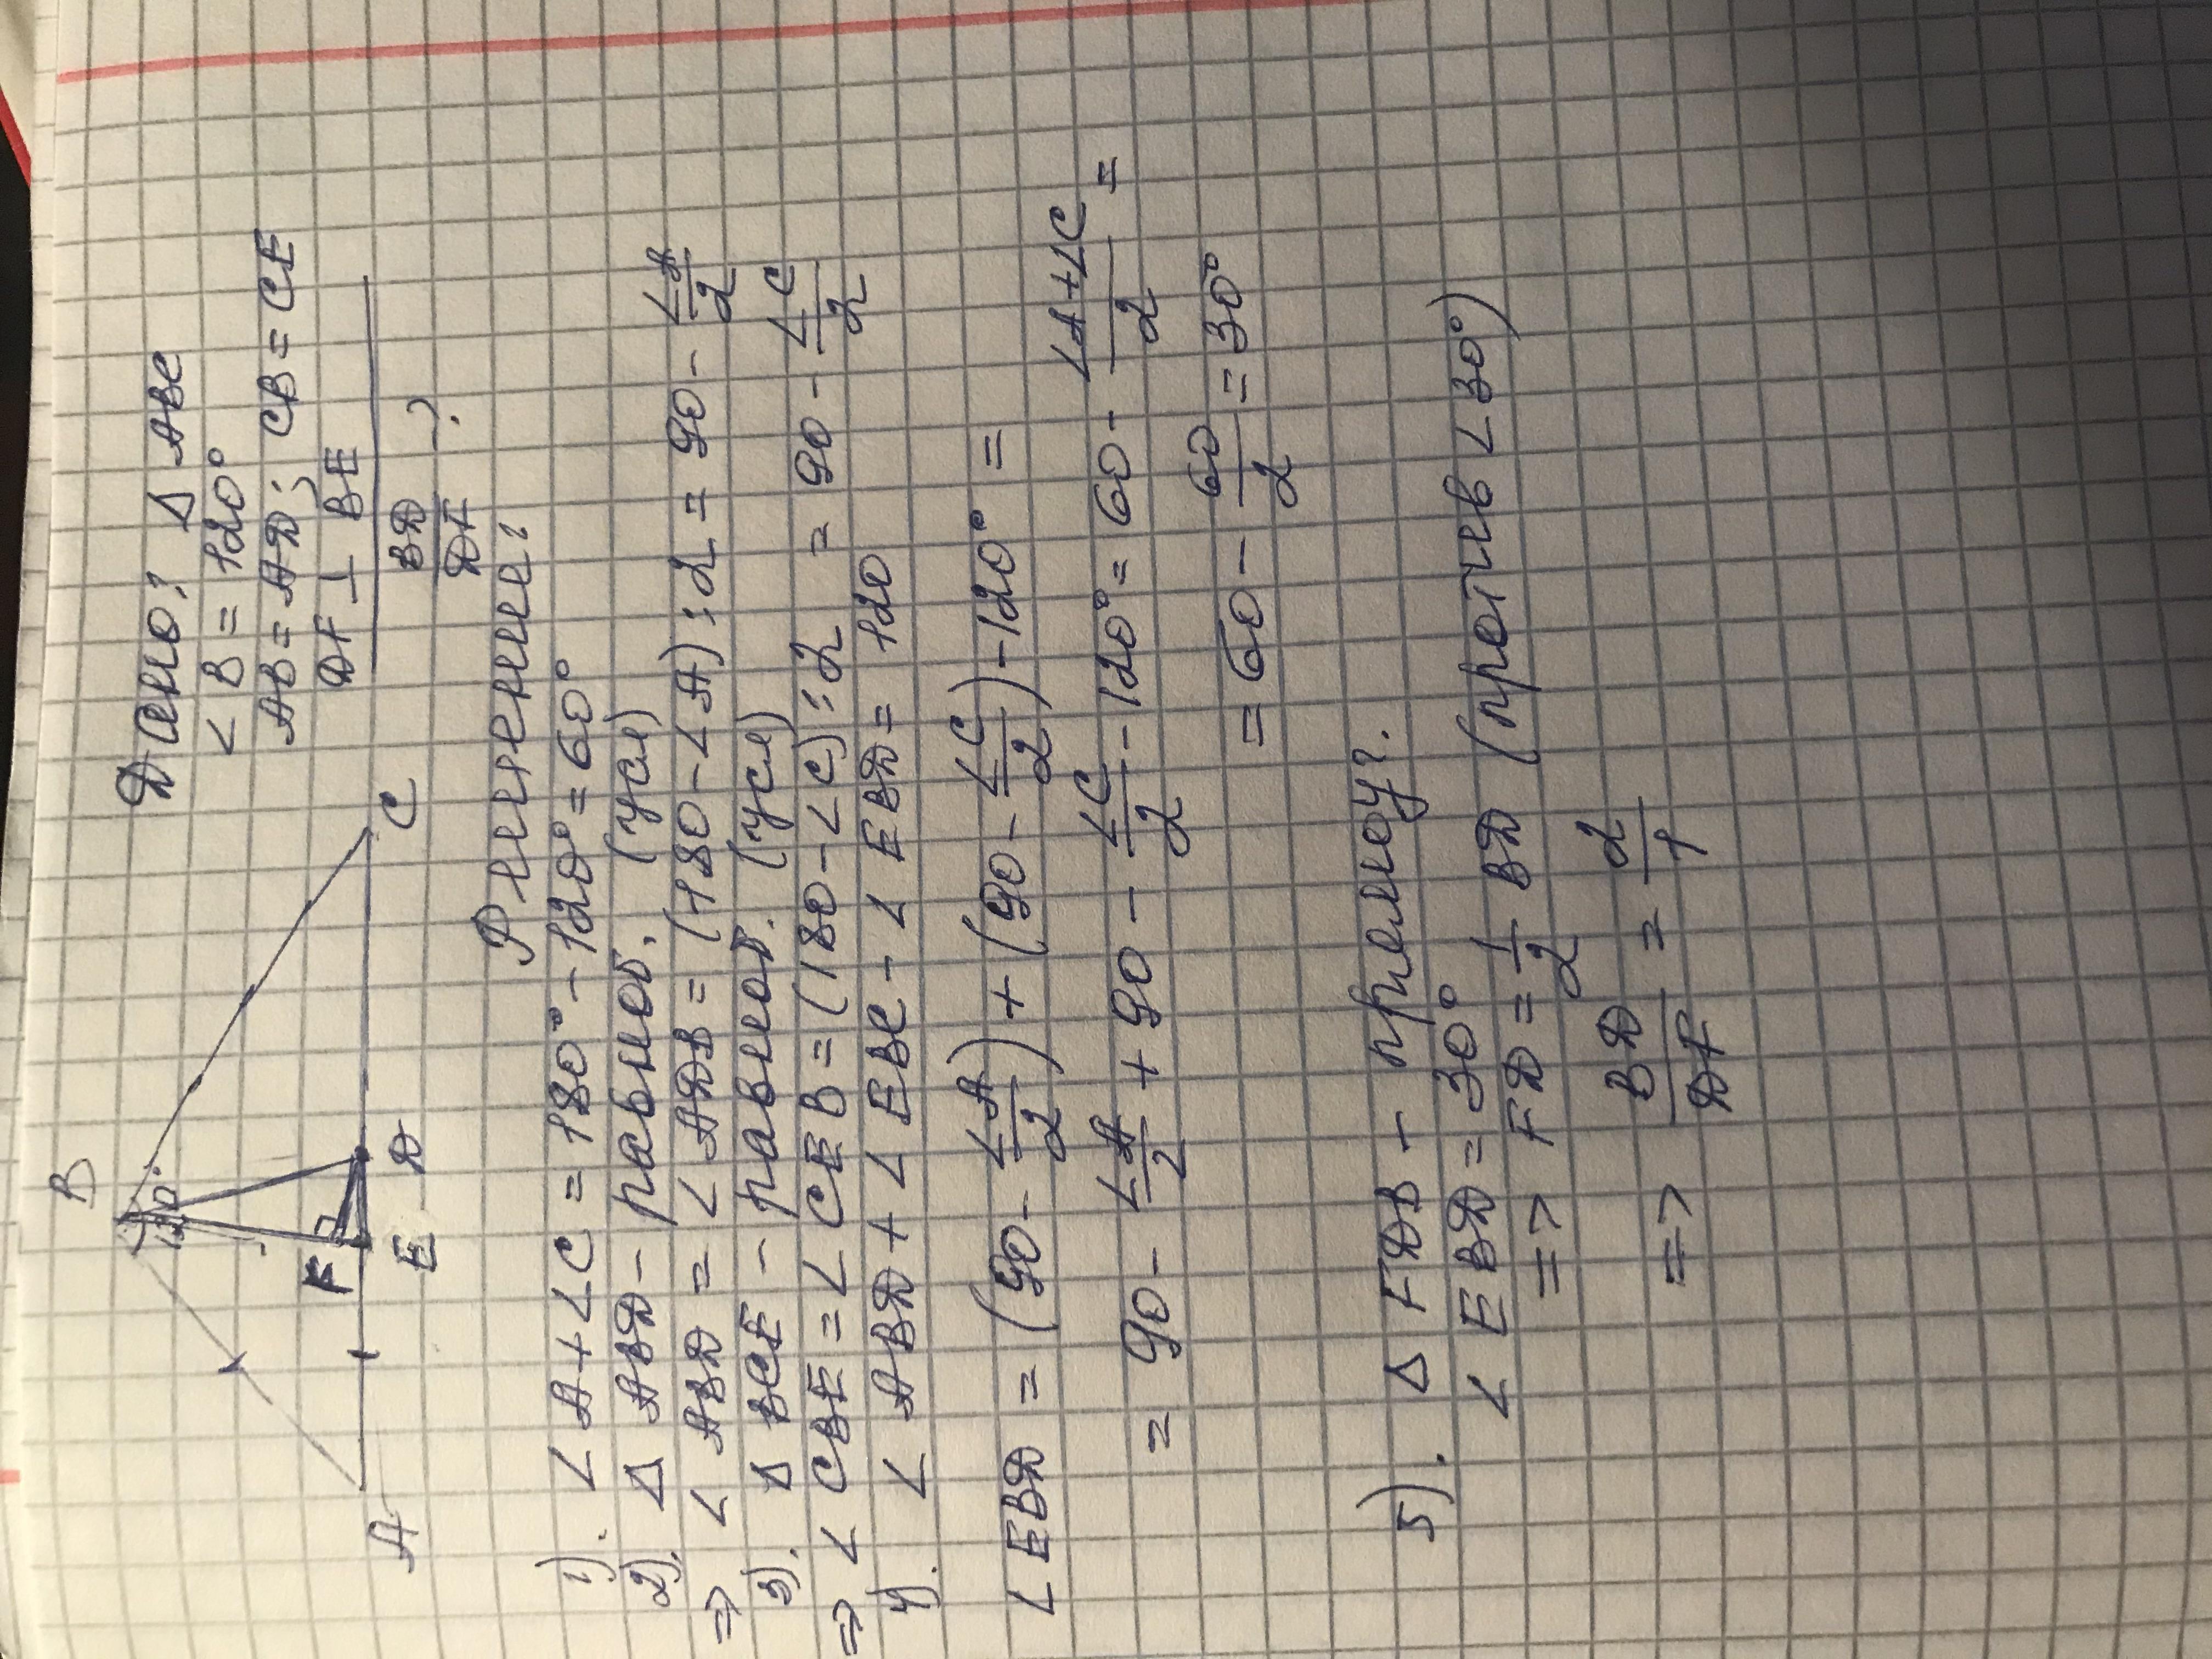 B
120°
F
A
E
D
C
Дано: Δ ABC
∠B = 120°
AB = AD; CB = CE
DF ⊥ BE
BD/DF - ?
Решение:
1). ∠A + ∠C = 180° - 120° = 60°
2). Δ ABD - равноб. (усл)
=> ∠ABD = ∠ADB = (180 - ∠A) : 2 = 90 - ∠A/2
3). Δ BCE - равноб. (усл)
=> ∠CBE = ∠CEB = (180 - ∠C) : 2 = 90 - ∠C/2
4). ∠ABD + ∠EBC - ∠EBD = 120
∠EBD = (90 - ∠A/2) + (90 - ∠C/2) - 120° =
= 90 - ∠A/2 + 90 - ∠C/2 - 120° = 60 - ∠A+∠C/2 =
= 60 - 60/2 = 30°
5). Δ FDB - прямоуг.
∠EBD = 30°
=> FD = 1/2 BD (против ∠30°)
=> BD/DF = 2/1